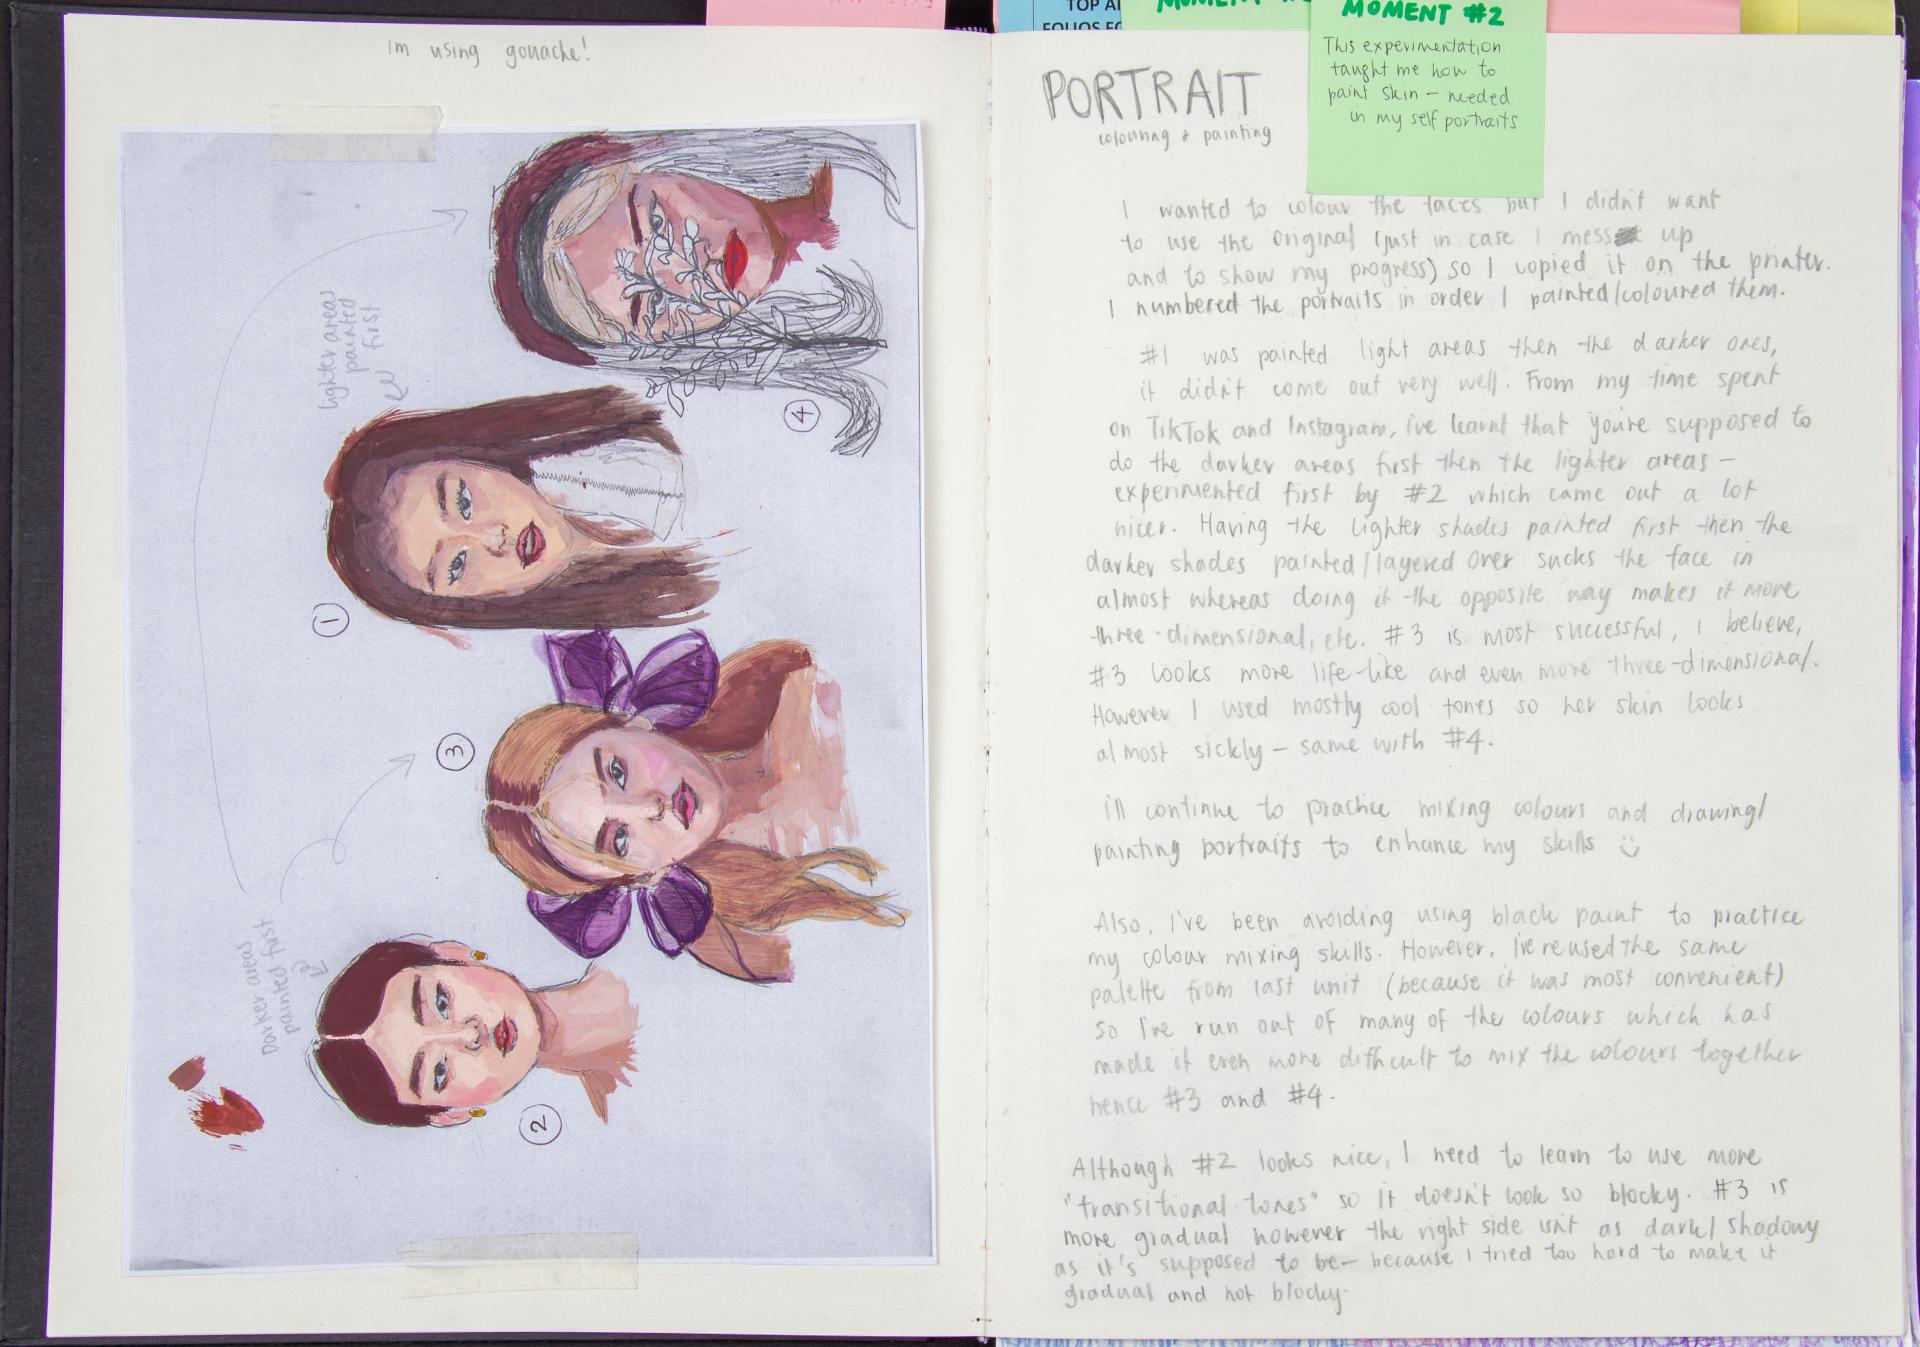 Im using gouache!
lighter areas
painted
first
Darker areas
painted first
1
2
3
4
TOP
FOLIOS
MOMENT
MOMENT #2
This experimentation
taught me how to
paint skin - needed
in my self portraits
PORTRAIT
colouring & painting
I wanted to colour the faces but I didn't want
to use the original (just in case I mess up
and to show my progress) so I copied it on the printer.
I numbered the portraits in order I painted/coloured them.
#1 was painted light areas then the darker ones,
it didn't come out very well. From my time spent
on TikTok and Instagram, i've learnt that you're supposed to
do the darker areas first then the lighter areas -
experimented first by #2 which came out a lot
nicer. Having the lighter shades painted first then the
darker shades painted/layered over sucks the face in
almost whereas doing it the opposite way makes it more
three-dimensional, etc. #3 is most successful, I believe,
#3 looks more life-like and even more three-dimensional.
However I used mostly cool tones so her skin looks
almost sickly - same with #4.
i'll continue to practice mixing colours and drawing/
painting portraits to enhance my skills
Also, I've been avoiding using black paint to practice
my colour mixing skills. However, I've reused the same
palette from last unit (because it was most convenient)
so I've run out of many of the colours which has
made it even more difficult to mix the colours together
hence #3 and #4.
Although #2 looks nice, I need to learn to use more
"transitional tones" so it doesn't look so blocky. #3 is
more gradual however the right side isn't as dark/shadowy
as it's supposed to be - because I tried too hard to make it
gradual and not blocky.